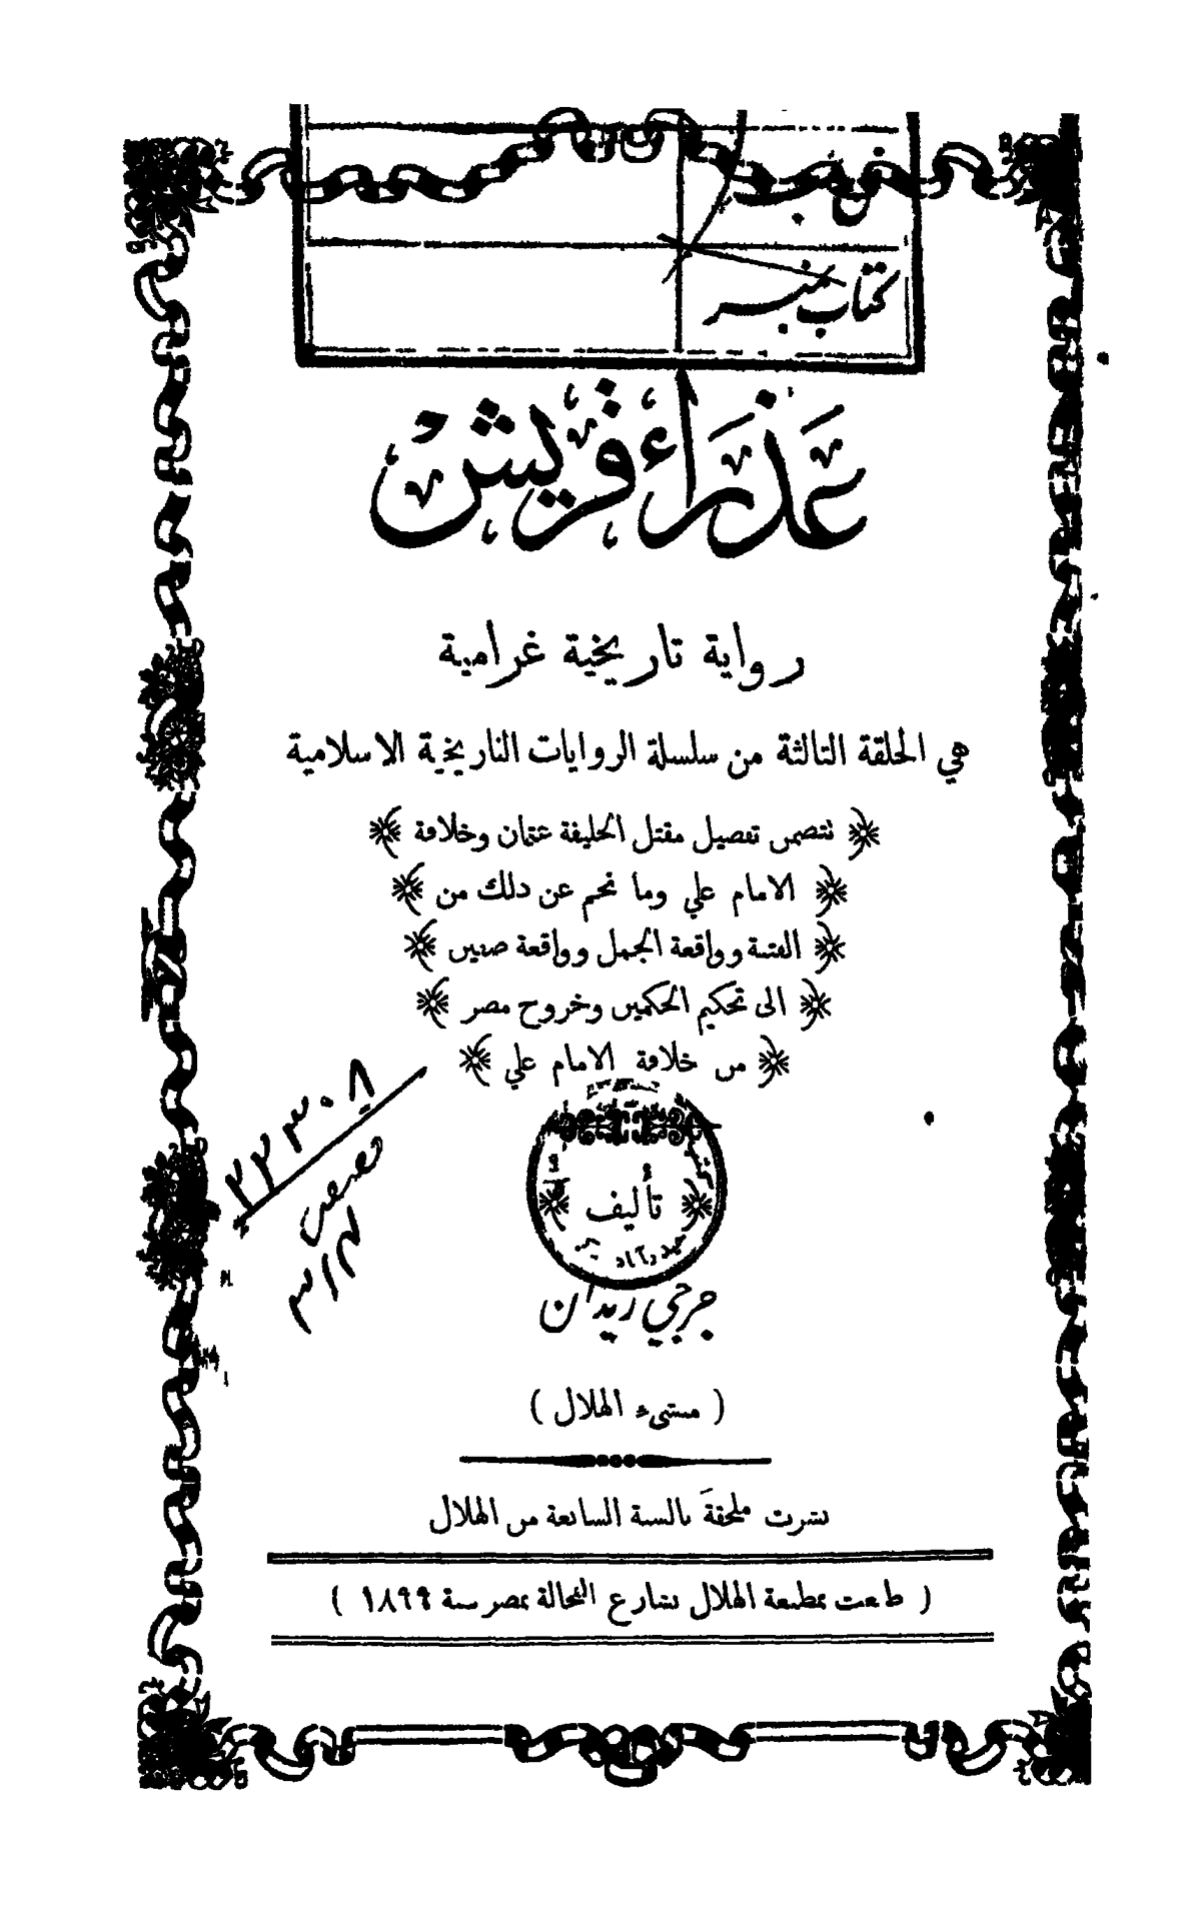 كتاب نمبر
عذراء قريش
رواية تاريخية غرامية
هي الحلقة الثالثة من سلسلة الروايات التاريخية الاسلامية
تتضمن تفصيل مقتل الخليفة عثمان وخلافة
الامام علي وما نجم عن ذلك من
الفتنة وواقعة الجمل وواقعة صفين
الى تحكيم الحكمين وخروج مصر
من خلافة الامام علي
تأليف
حيدرآباد
جرجي زيدان
( منشىء الهلال )
نشرت ملحقة بالسنة السابعة من الهلال
( طبعت بمطبعة الهلال بشارع الفجالة بمصر سنة ١٨٩٩ )